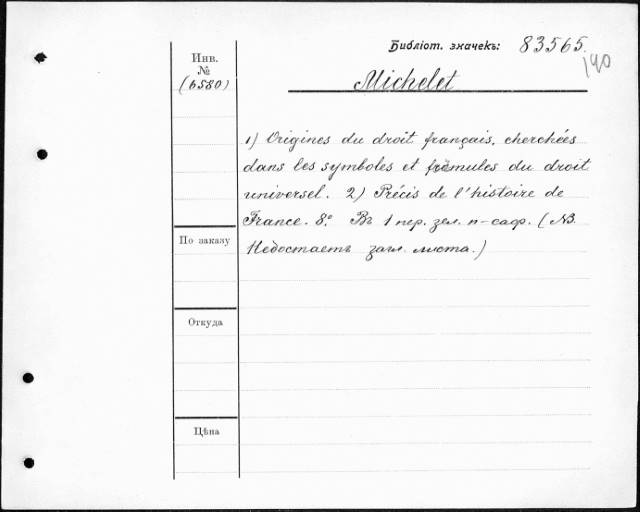 Библіот. значекъ: 83565.
190
Инв.
№
(6580)
Michelet
1) Origines du droit français, cherchées
dans les symboles et formules du droit
universel. 2) Précis de l'histoire de
France. 8.° Въ 1 пер. зел. п-саф. (NB.
Недостаетъ загл. листа.)
По заказу
Откуда
Цѣна